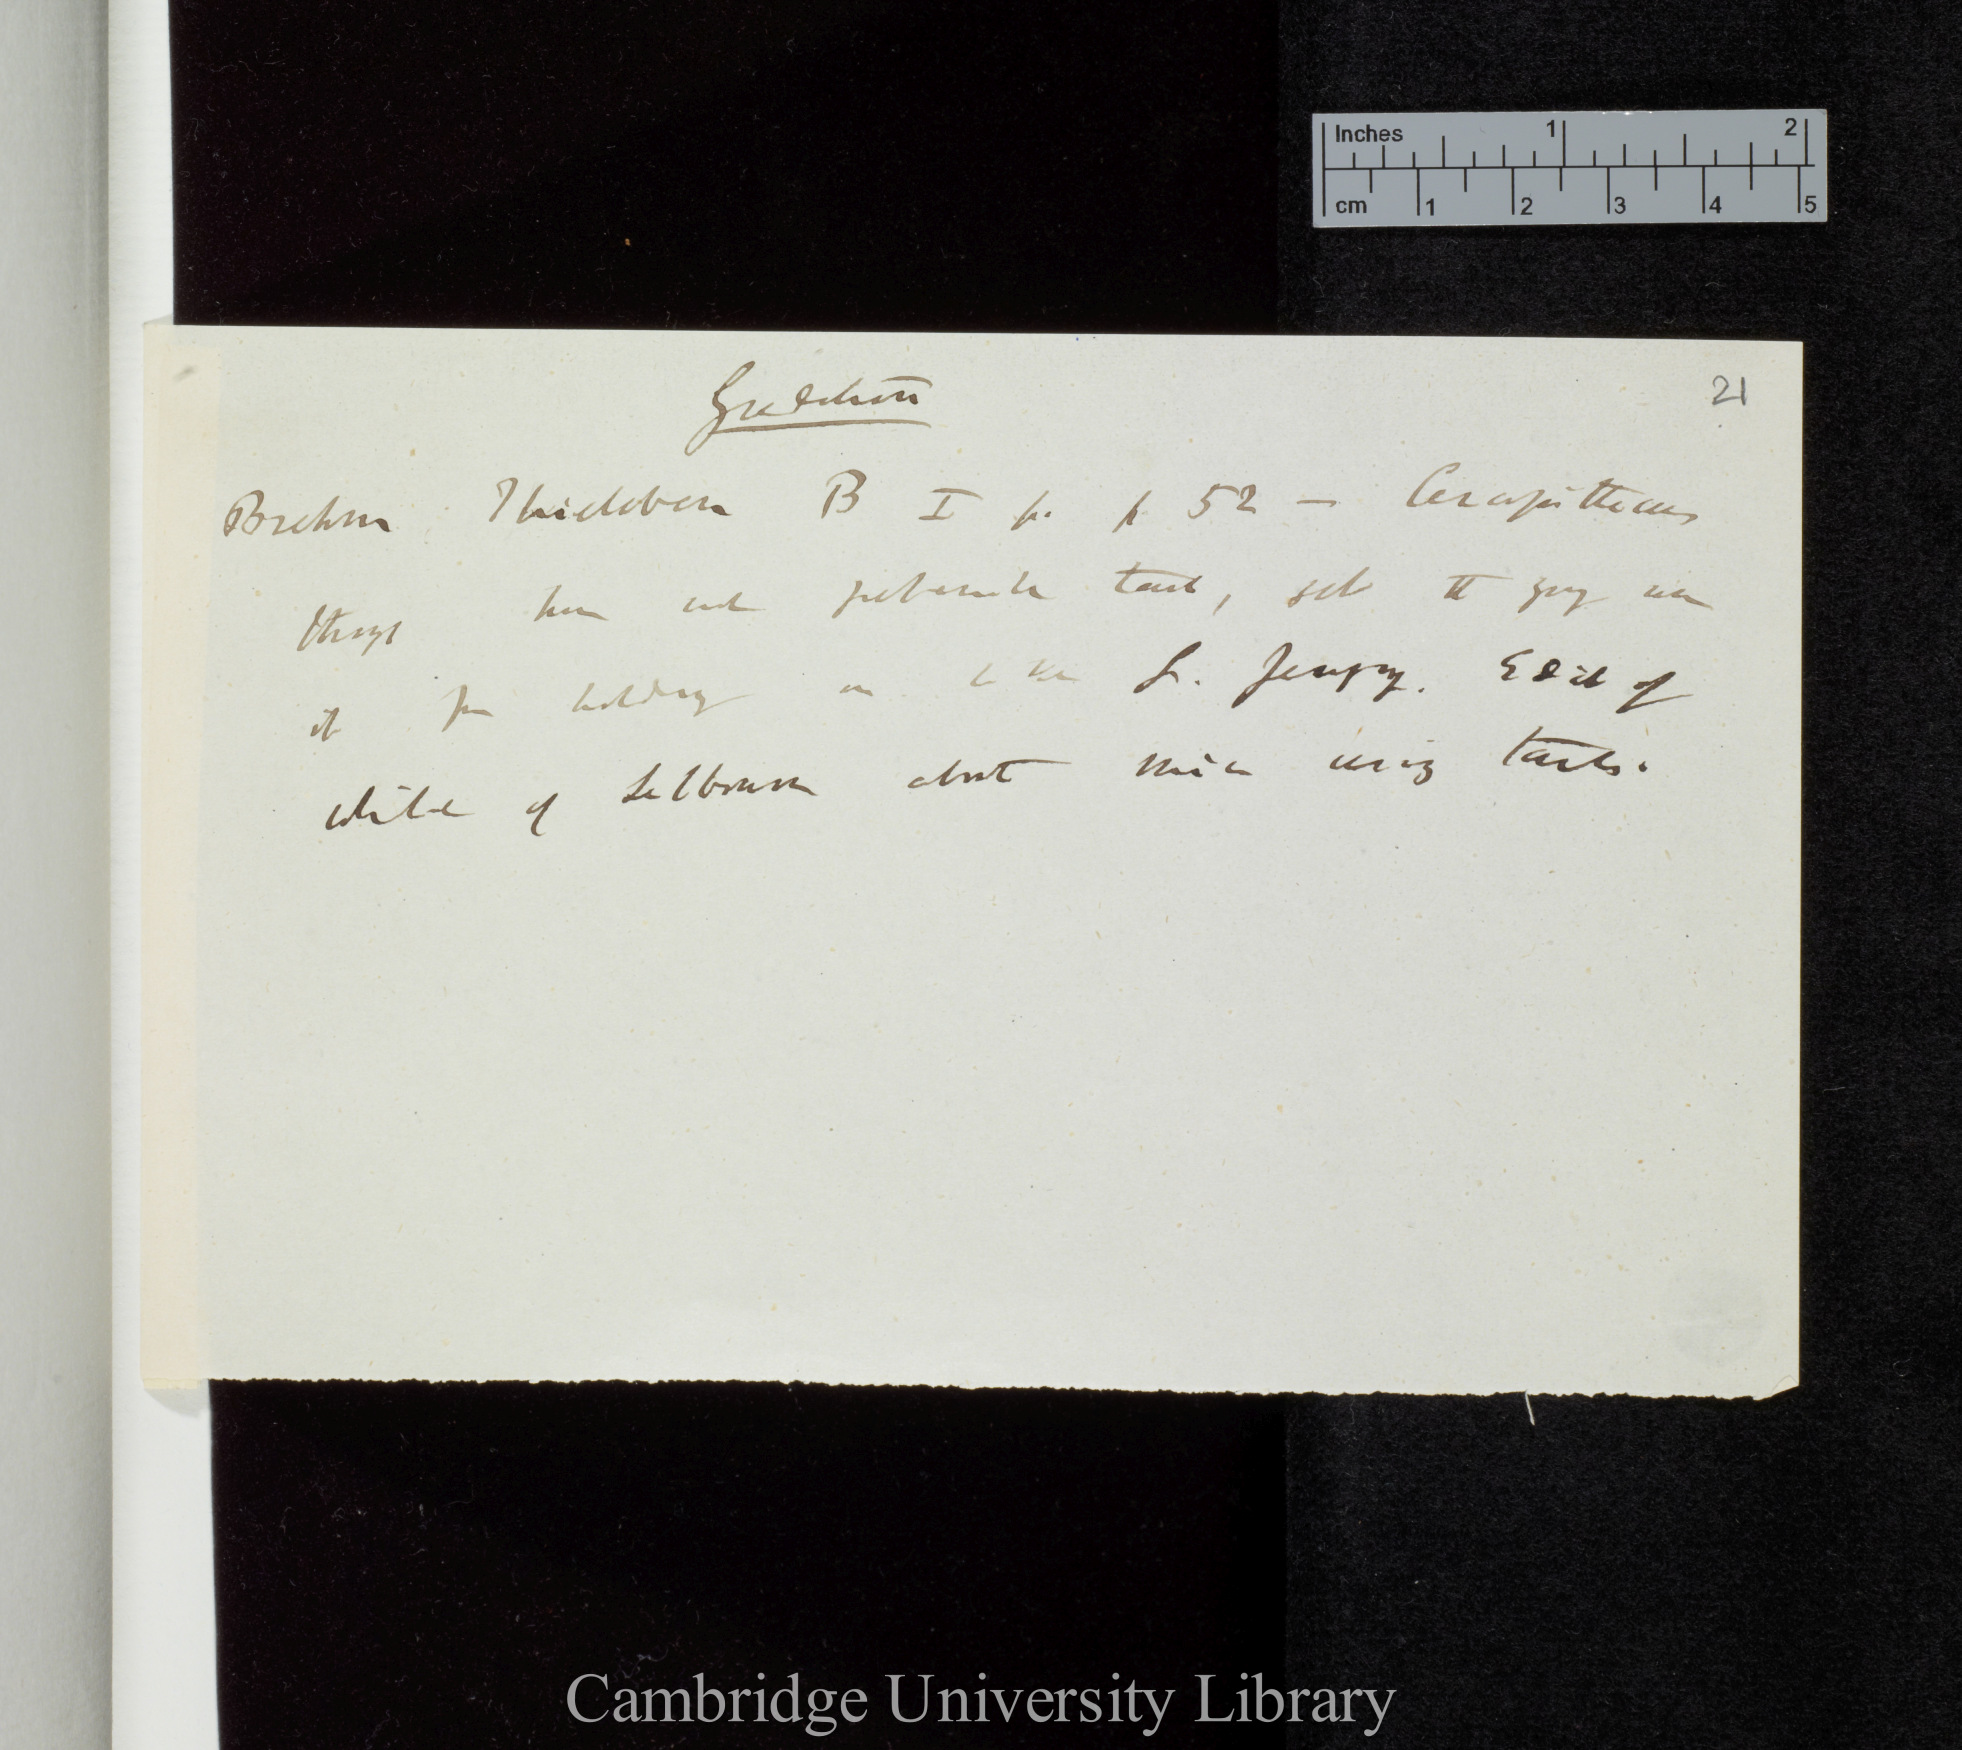 Inches 1 2
cm 1 2 3 4 5
21
Gradation
Brehm Thierleben B I p. p 52 — Cercopithecus
though have not prehensile tail, yet the young use
it for holding on to the L. Jenyns. Edit of
White of Selbourne about mice using tails.
Cambridge University Library